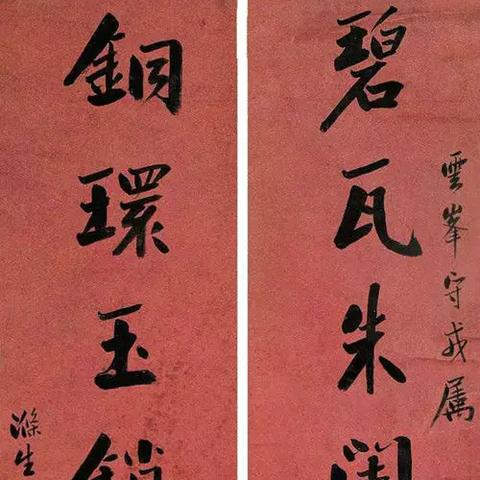 雲峯守戎属
碧瓦朱
銅環玉鎖
滌生